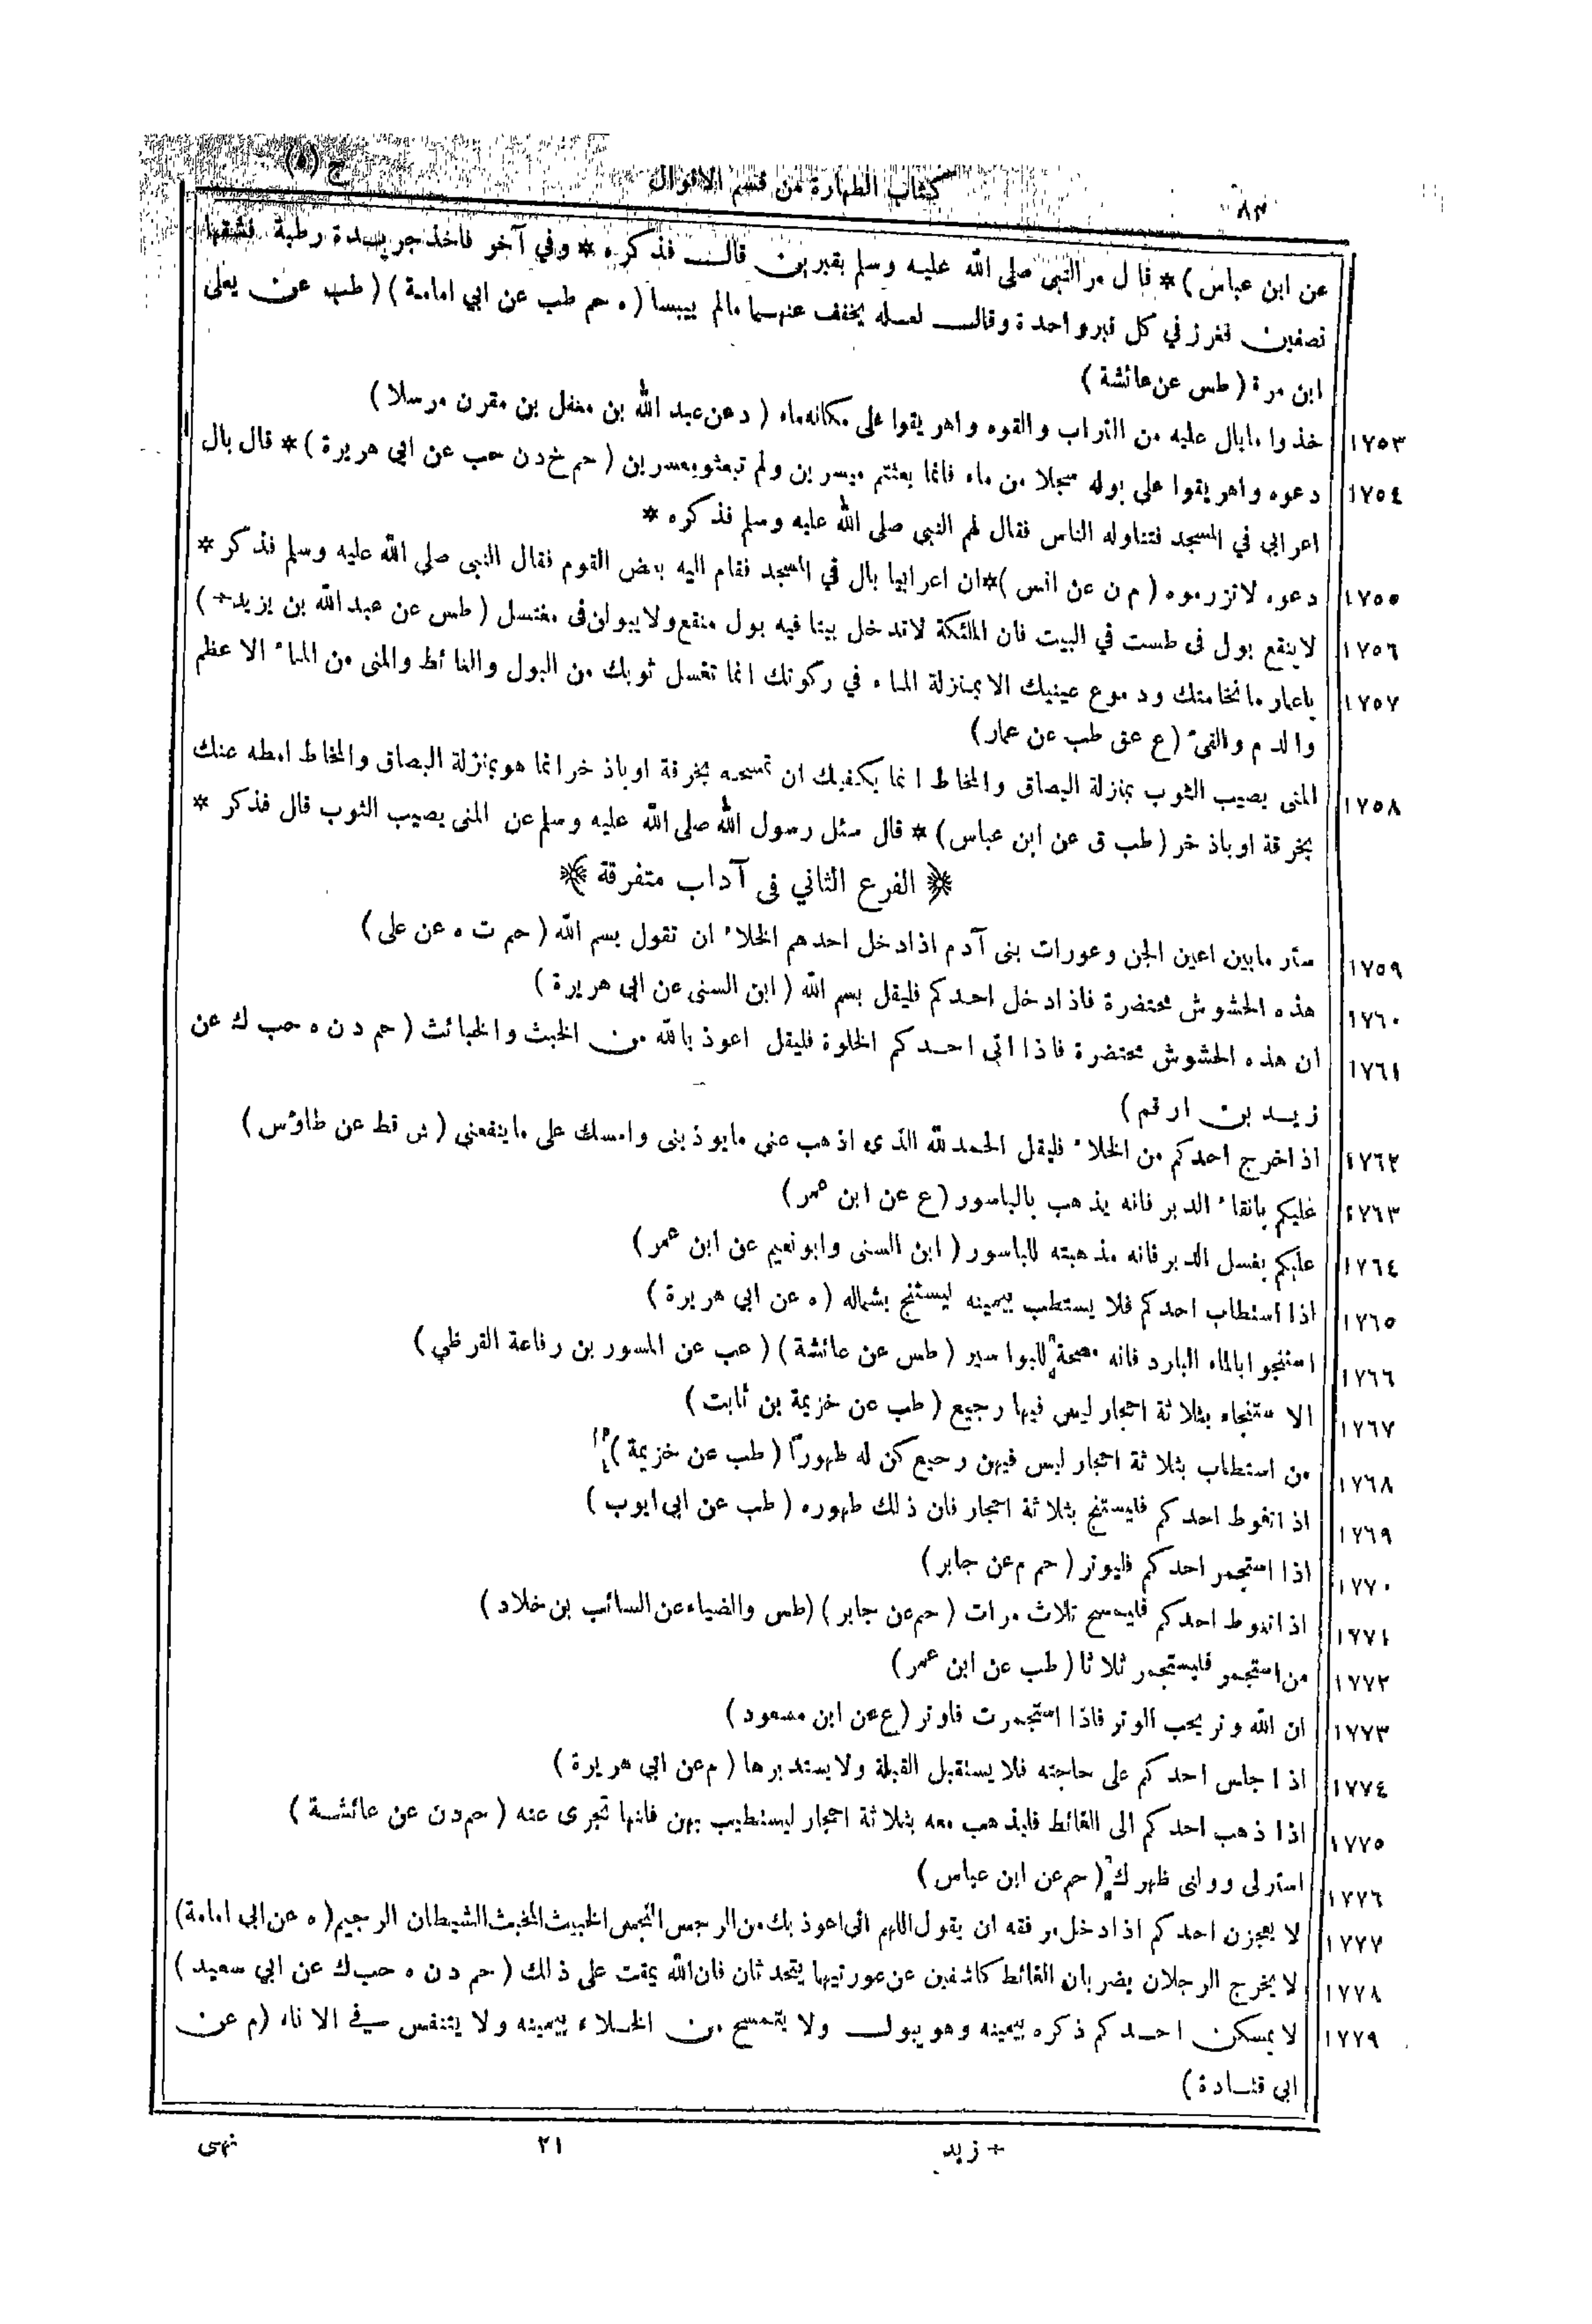 ج (٥)
كتاب الطهارة من قسم الاقوال
٨٣
عن ابن عباس) * قال مر النبى صلى الله عليه وسلم بقبرين قال فذكره * وفي آخر فاخذ جريدة رطبة فشقها
نصفين فغرز في كل قبر واحدة وقال لعله يخفف عنهما مالم ييبسا (ه حم طب عن ابي امامة) (طب عن يعلى
ابن مرة (طس عن عائشة)
١٧٥٣ خذوا مابال عليه من التراب والقوه واهريقوا على مكانه ماء (د عن عبد الله بن مغفل بن مقرن مرسلا)
١٧٥٤ دعوه واهريقوا على بوله سجلا من ماء فانما بعثتم ميسرين ولم تبعثو معسرين (حم خ د ن حب عن ابي هريرة) * قال بال
اعرابي في المسجد فتناوله الناس فقال لهم النبى صلى الله عليه وسلم فذكره *
١٧٥٥ دعوه لاتزرموه (م ن عن انس) * ان اعرابيا بال في المسجد فقام اليه بعض القوم فقال النبى صلى الله عليه وسلم فذكر *
١٧٥٦ لاينقع بول فى طست في البيت فان الملئكة لاتدخل بيتا فيه بول منقع ولا يبولن فى مغتسل (طس عن عبد الله بن يزيد+)
١٧٥٧ ياعمار مانخامتك ودموع عينيك الا بمنزلة الماء في ركوتك انما تغسل ثوبك من البول والغائط والمنى من الماء الاعظم
والدم والقئ (ع عق طب عن عمار)
١٧٥٨ المنى يصيب الثوب بمنزلة البصاق والمخاط انما يكفيك ان تمسحه بخرقة او باذخر انما هو بمنزلة البصاق والمخاط امطه عنك
بخرقة او باذخر (طب ق عن ابن عباس) * قال سئل رسول الله صلى الله عليه وسلم عن المنى يصيب الثوب قال فذكر *
﴿ الفرع الثاني فى آداب متفرقة ﴾
١٧٥٩ ستر مابين اعين الجن وعورات بنى آدم اذا دخل احدهم الخلاء ان تقول بسم الله (حم ت ه عن على)
١٧٦٠ هذه الحشوش محتضرة فاذا دخل احدكم فليقل بسم الله (ابن السنى عن ابي هريرة)
١٧٦١ ان هذه الحشوش محتضرة فاذا اتى احدكم الخلوة فليقل اعوذ بالله من الخبث والخبائث (حم د ن ه حب ك عن
زيد بن ارقم)
١٧٦٢ اذا خرج احدكم من الخلاء فليقل الحمد لله الذى اذهب عنى مايوذينى وامسك على ماينفعنى (ش قط عن طاؤس)
١٧٦٣ عليكم بانقاء الدبر فانه يذهب بالباسور (ع عن ابن عمر)
١٧٦٤ عليكم بغسل الدبر فانه مذهبته للباسور (ابن السنى وابو نعيم عن ابن عمر)
١٧٦٥ اذا استطاب احدكم فلا يستطب بيمينه ليستنج بشماله (ه عن ابي هريرة)
١٧٦٦ استنجوا بالماء البارد فانه مصحة للبواسير (طس عن عائشة) (عب عن المسور بن رفاعة القرظي)
١٧٦٧ الاستنجاء بثلاثة احجار ليس فيها رجيع (طب عن خزيمة بن ثابت)
١٧٦٨ من استطاب بثلاثة احجار ليس فيهن رجيع كن له طهورا (طب عن خزيمة)
١٧٦٩ اذا تغوط احدكم فليستنج بثلاثة احجار فان ذلك طهوره (طب عن ابى ايوب)
١٧٧٠ اذا استجمر احدكم فليوتر (حم م عن جابر)
١٧٧١ اذا تغوط احدكم فليمسح ثلاث مرات (حم عن جابر) (طس والضياء عن السائب بن خلاد)
١٧٧٢ من استجمر فليستجمر ثلاثا (طب عن ابن عمر)
١٧٧٣ ان الله وتر يحب الوتر فاذا استجمرت فاوتر (ع عن ابن مسعود)
١٧٧٤ اذا جلس احدكم على حاجته فلا يستقبل القبلة ولا يستدبرها (م عن ابي هريرة)
١٧٧٥ اذا ذهب احدكم الى الغائط فليذهب معه بثلاثة احجار ليستطيب بهن فانها تجرى عنه (حم د ن عن عائشة)
١٧٧٦ استرلى وولنى ظهرك (حم عن ابن عباس)
١٧٧٧ لا يعجزن احدكم اذا دخل مرفقه ان يقول اللهم انى اعوذ بك من الرجس النجس الخبيث المخبث الشيطان الرجيم (ه عن ابي امامة)
١٧٧٨ لا يخرج الرجلان يضربان الغائط كاشفين عن عورتيها يتحدثان فان الله يمقت على ذلك (حم د ن ه حب ك عن ابي سعيد)
١٧٧٩ لا يمسكن احدكم ذكره بيمينه وهو يبول ولا يتمسح من الخلاء بيمينه ولا يتنفس في الاناء (م عن
ابي قتادة)
+ زيد
٢١
نهى